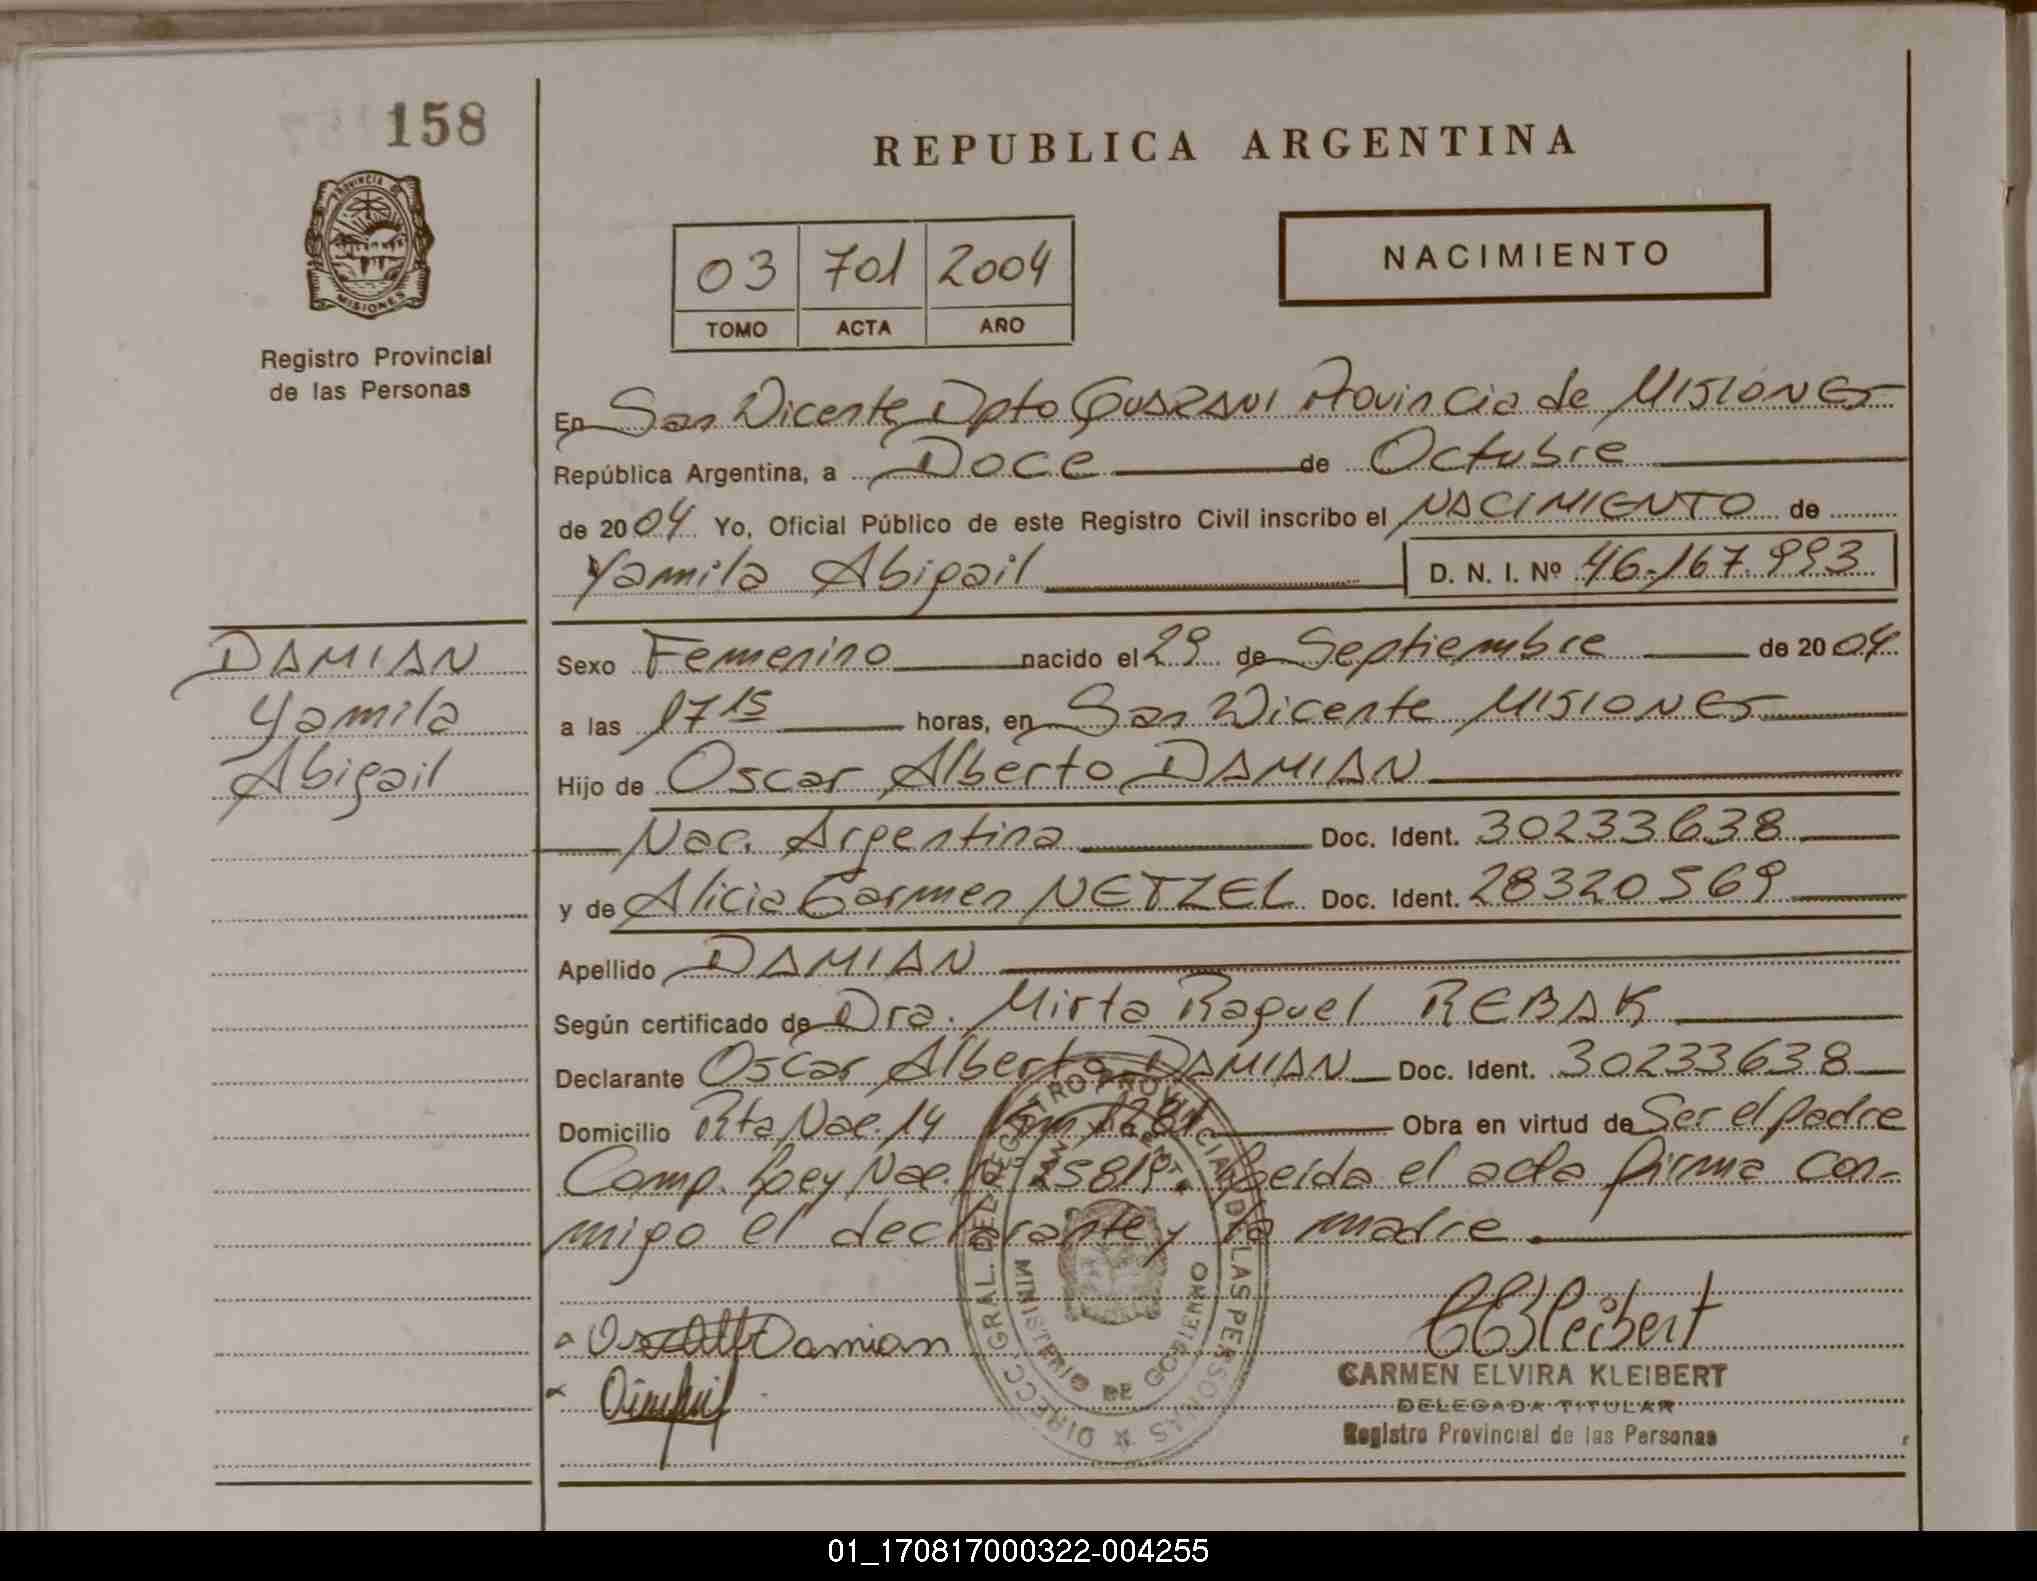 158
PROVINCIA DE
MISIONES
Registro Provincial
de las Personas
REPUBLICA ARGENTINA
03 701 2004
TOMO ACTA AÑO
NACIMIENTO
En San Vicente Dpto GUARANI Provincia de MISIONES
República Argentina, a Doce de Octubre
de 2004 Yo, Oficial Público de este Registro Civil inscribo el NACIMIENTO de
Yamila Abigail D. N. I. Nº 46.167.993
DAMIAN
Yamila
Abigail
Sexo Femenino nacido el 29 de Septiembre de 2004
a las 17 15 horas, en San Vicente MISIONES
Hijo de Oscar Alberto DAMIAN
Nac. Argentina Doc. Ident. 30233638
y de Alicia Carmen NETZEL Doc. Ident. 28320569
Apellido DAMIAN
Según certificado de Dra. Mirta Raquel REBAK
Declarante Oscar Alberto DAMIAN Doc. Ident. 30233638
Domicilio Rta Nac. 14 Km 1281 Obra en virtud de Ser el padre
Comp. Ley Nac. 25819. Leida el acta firma con-
migo el declarante y la madre
Damian
CEKleibert
CARMEN ELVIRA KLEIBERT
DELEGADA TITULAR
Registro Provincial de las Personas
DIRECC. GRAL. DEL REGISTRO PROVINCIAL DE LAS PERSONAS
MINISTERIO DE GOBIERNO
01_170817000322-004255